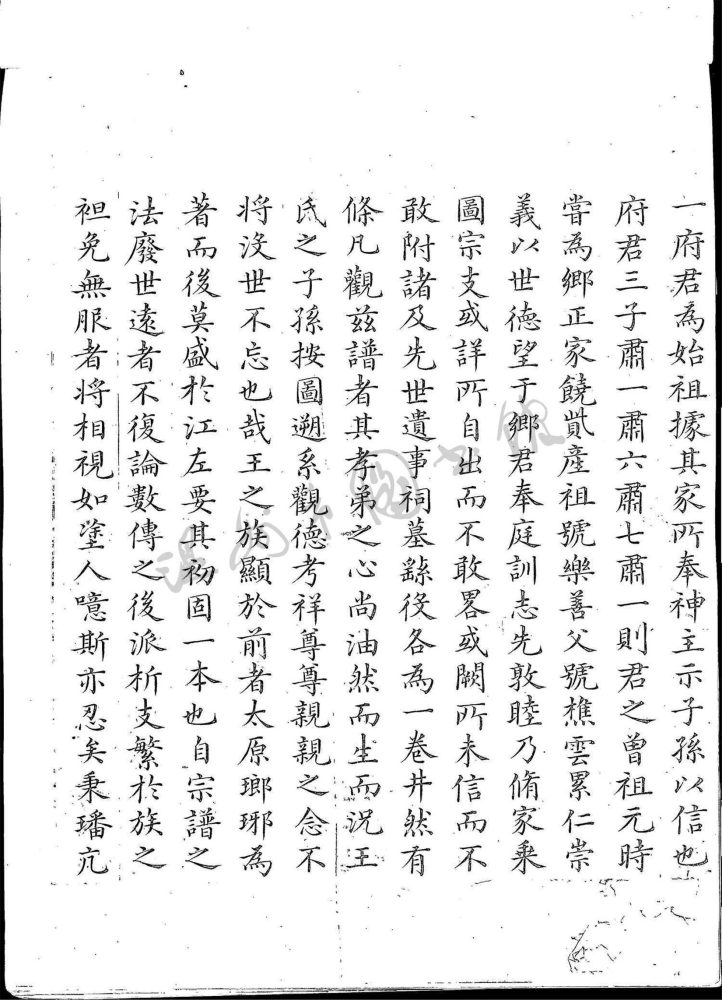 一府君為始祖據其家所奉神主示子孫以信也
府君三子肅一肅六肅七肅一則君之曾祖元時
嘗為鄉正家饒貲產祖號樂善父號樵雲累仁崇
義以世德望于鄉君奉庭訓志先敦睦乃脩家乗
圖宗支或詳所自出而不敢畧或闕所未信而不
敢附諸及先世遺事祠墓繇役各為一卷井然有
條凡觀茲譜者其孝弟之心尚油然而生而況王
氏之子孫按圖遡系觀德考祥尊尊親親之念不
将沒世不忘也哉王之族顯於前者太原瑯琊為
著而後莫盛於江左要其初固一本也自宗譜之
法廢世遠者不復論數傳之後派析支繁於族之
袒免無服者将相視如塗人噫斯亦忍矣秉璠亢